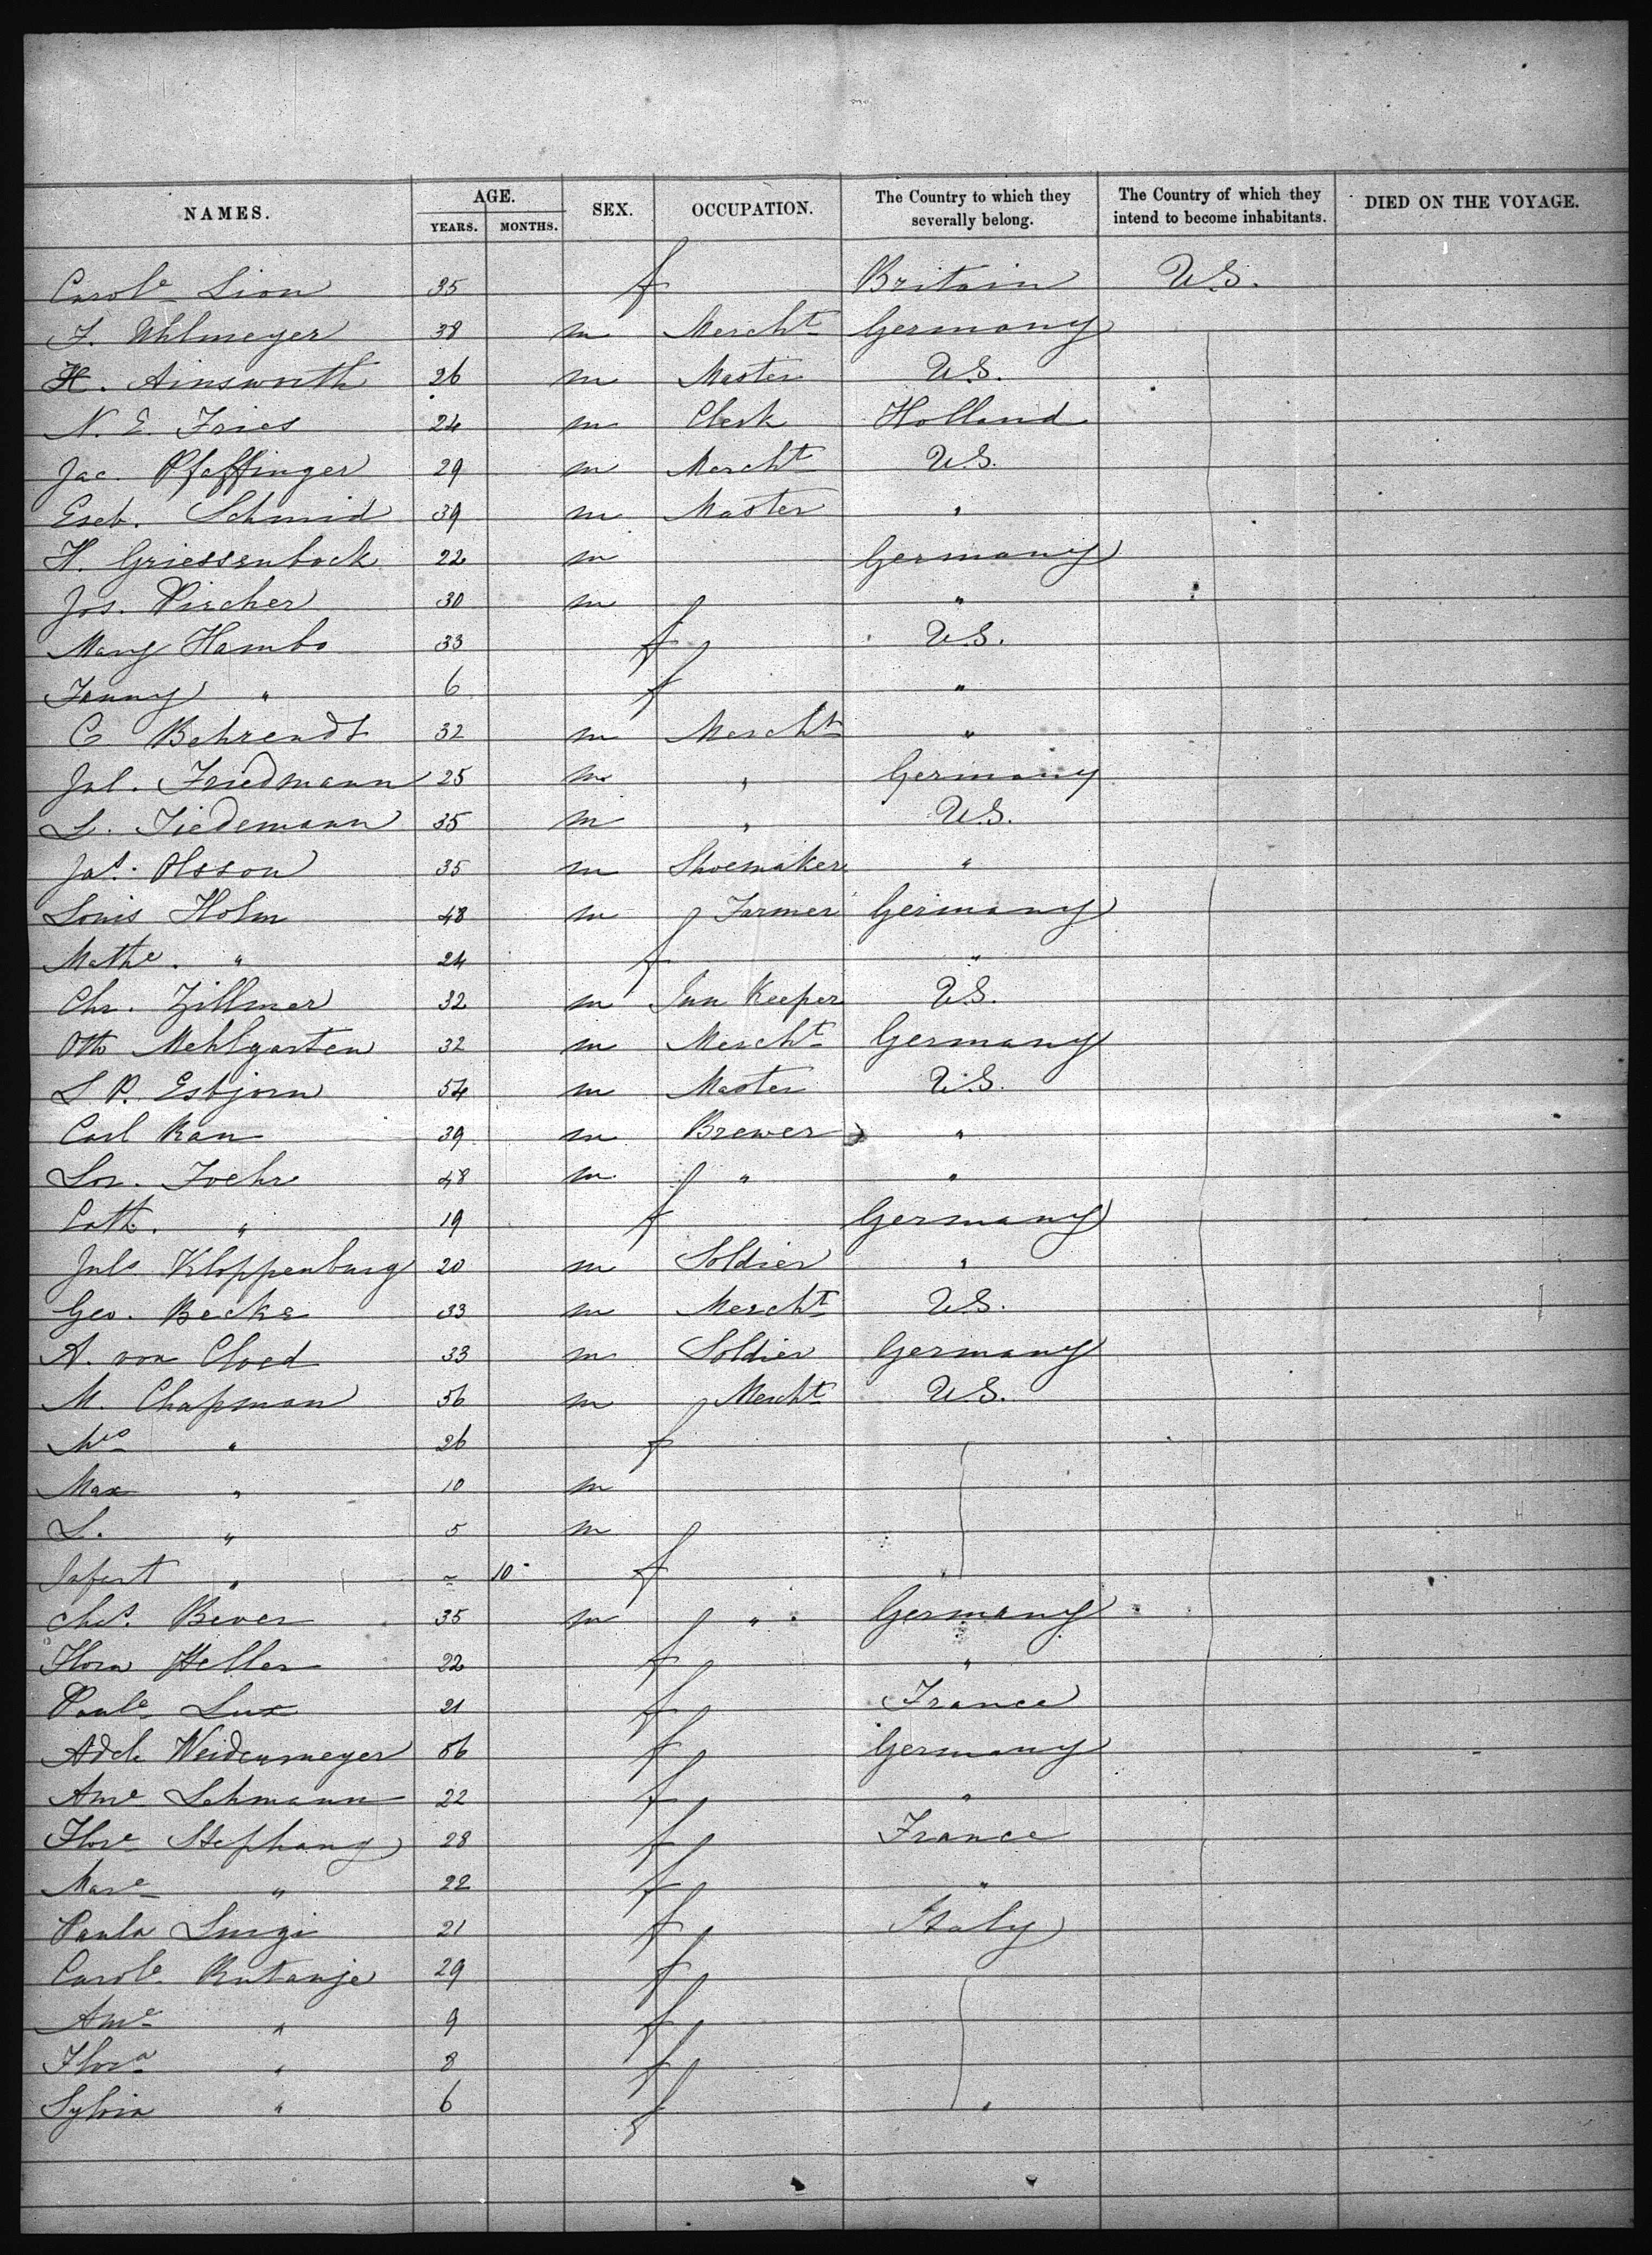 NAMES. AGE. SEX. OCCUPATION. The Country to which they severally belong. The Country of which they intend to become inhabitants. DIED ON THE VOYAGE.
YEARS. MONTHS.
Carole Lion 35 f Britain U.S.
F. Uhlmeyer 38 m Mercht Germany
H. Ainsworth 26 m Master U.S.
N. E. Fries 24 m Clerk Holland
Jac. Pfaffinger 29 m Mercht U.S.
Eseb. Schmid 39 m Master "
H. Griessenbock 22 m Germany
Jos. Pircher 30 m "
Mary Hambo 33 f U.S.
Fanny " 6 f "
C. Behrendt 32 m Mercht "
Jul. Friedmann 25 m " Germany
L. Tiedemann 35 m " U.S.
Jas. Olsson 35 m Shoemaker "
Louis Holm 48 m Farmer Germany
Mathe. " 24 f "
Chr. Zillmer 32 m Inn Keeper U.S.
Otto Mehlgarten 32 m Mercht Germany
L. P. Esbjorn 54 m Master U.S.
Carl Rau 39 m Brewer "
Lor. Foehr 48 m " "
Cath. " 19 f Germany
Juls Kloppenburg 20 m Soldier "
Geo. Backe 33 m Mercht U.S.
A. von Cloed 33 m Soldier Germany
M. Chapman 56 m Mercht U.S.
Mrs " 26 f
Max " 10 m
L. " 5 m
Infant " ~ 10 f
Chs. Bever 35 m " Germany
Flora Heller 22 f "
Paule Lux 21 f France
Adele Weidenmeyer 56 f Germany
Ame Lehmann 22 f "
Flore Stephany 28 f France
Mare " 22 f "
Paula Luigi 21 f Italy
Carole Rutanje 29 f
Ame " 9 f
Flora " 8 f
Sylvia " 6 f "